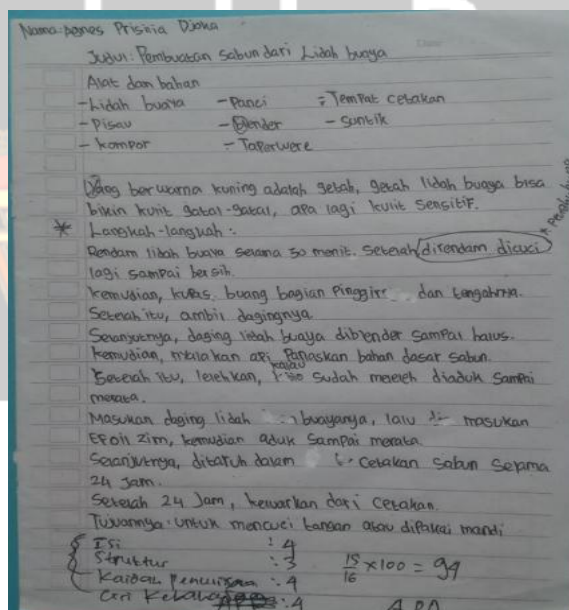 Nama: Agnes Prisinia Djoka
Judul: Pembuatan Sabun dari Lidah buaya
Alat dam bahan
- Lidah buaya - Panci - Tempat cetakan
- Pisau - Blender - Suntik
- Kompor - Taperwere
Yang berwarna kuning adalah getah, getah lidah buaya bisa
bikin kulit gatal-gatal, apa lagi kulit sensitif.
* Langkah-langkah :
Rendam lidah buaya selama 30 menit. Setelah direndam dicuci
lagi sampai bersih.
Kemudian, kupas, buang bagian Pinggir dan tengahnya.
Setelah itu, ambil dagingnya
Selanjutnya, daging lidah buaya diblender sampai halus.
Kemudian, nyalakan api Panaskan bahan dasar sabun.
Setelah itu, lelehkan, kalau sudah meleleh diaduk Sampai
merata.
Masukan daging lidah buayanya, lalu masukan
Efoil zim, kemudian aduk sampai merata.
Selanjutnya, ditaruh dalam cetakan sabun selama
24 Jam.
Setelah 24 Jam, keluarkan dari cetakan.
Tujuannya: untuk mencuci tangan atau dipakai mandi
Isi : 4
Struktur : 3
Kaidah Penulisan : 4
Ciri Kebahasaan : 4
15/16 x 100 = 94